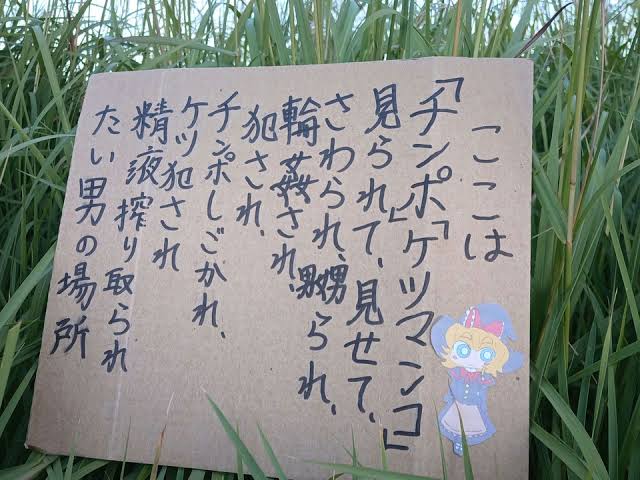 ここは
「チンポ」「ケツマンコ」
見られて、見せて、
さわられ、嬲られ、
輪姦され、
犯され、
チンポしごかれ、
ケツ犯され
精液搾り取られ
たい男の場所